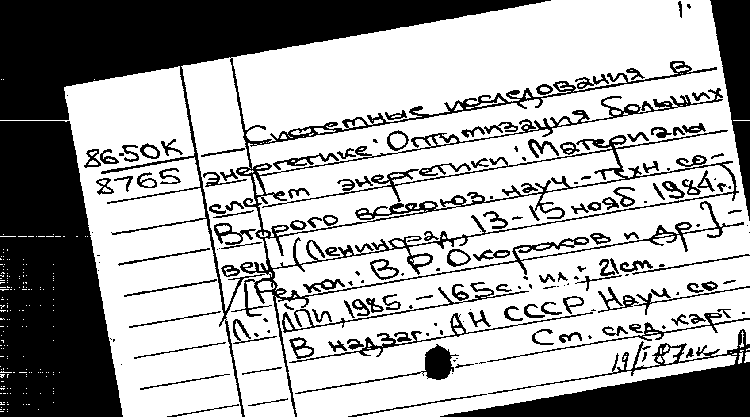 1.
Системные исследования в
86-50К
8765
энергетике: Оптимизация больших
систем энергетики: Материалы
Второго всесоюз. науч.-техн. со-
вещ. (Ленинград, 13-15 нояб. 1984г.)
/[Редкол.: В.Р. Окороков и др.].-
Л.: ЛПИ, 1985.-165с.: ил.; 21см.
В надзаг.: АН СССР. Науч. со-
См. след. карт.
19/I 87